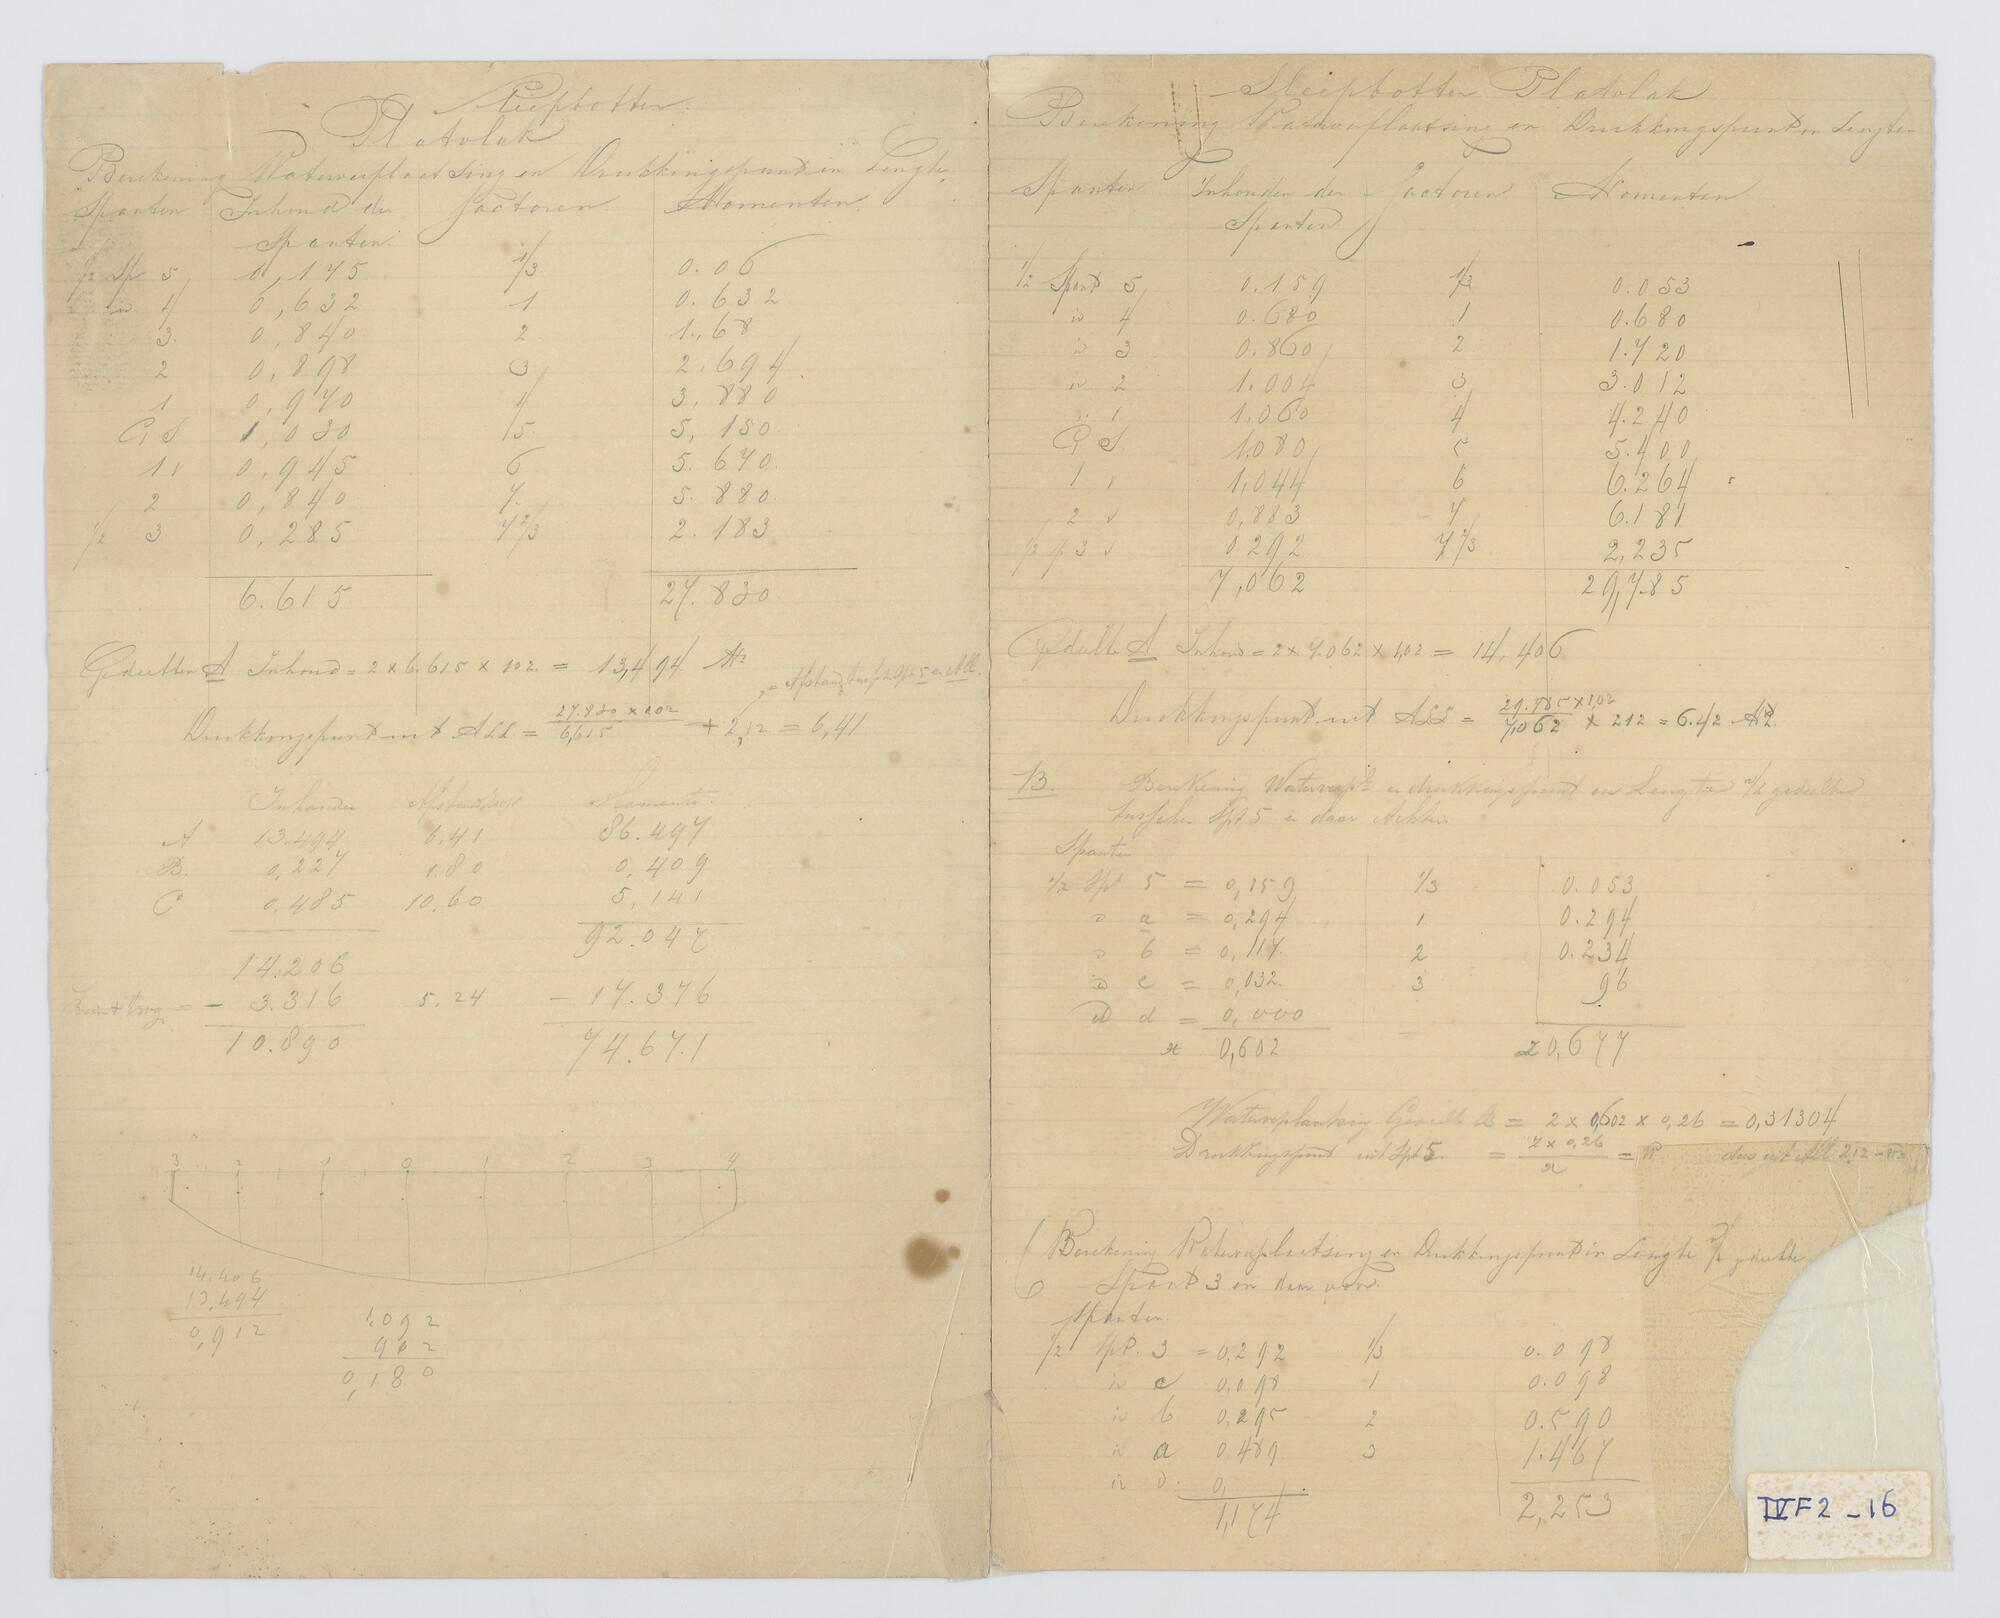 Sleepbotter
Platvlak
Berekening Waterverplaatsing en Drukkingspunt in Lengte
Spanten Inhoud der Factoren Momenten
Spanten
1/2 Sp 5 0,175 1/3 0.06
" 4 0,632 1 0.632
3 0,840 2 1.68
2 0,898 3 2.694
1 0,970 4 3.880
G S 1,030 5 5,150
1 0,945 6 5.670
2 0,840 7 5.880
1/2 3 0,285 7 2/3 2.183
6.615 27.830
Gedeelten A Inhoud = 2 x 6.615 x 102 = 13,494 M
= Afstand Spt 5 en ALL
Drukkingspunt uit ALL = 27.830 x 102 / 6,615 + 2,12 = 6,41
Inhouden Momenten
A 13.494 6.41 86.497
B. 0,227 1.80 0,409
C 0.485 10.60 5,141
92.047
14.206
= - 3.316 5.24 - 17.376
10.890 74.671
3 2 1 0 1 2 3 4
14.406
13,494
0,912
1.092
912
0,180
Sleepbotter Platvlak
Berekening Waterverplaatsing en Drukkingspunt in Lengte
Spanten Inhouden der Factoren Momenten
Spanten
1/2 Spant 5 0.159 1/3 0.053
" 4 0.680 1 0.680
" 3 0.860 2 1.720
" 2 1.004 3 3.012
" 1 1.060 4 4.240
G S. 1.080 5 5.400
1 1,044 6 6.264
2 0,883 7 6.181
1/2 sp 3 0292 7 2/3 2,235
7,062 29,785
Gedeelte A Inhoud = 2 x 7.062 x 1,02 = 14,406
Drukkingspunt uit ALL = 29.785 x 1,02 / 7,062 x 212 = 6.42 M
B. Berekening Waterverpl en drukkingspunt in Lengte v/h gedeelte
tusschen Spt 5 en daar Achter
Spanten
1/2 Spt 5 = 0,159 1/3 0.053
" a = 0,294 1 0.294
" b = 0,117 2 0.234
" c = 0,032 3 96
" d = 0,000
x 0,602 z 0,677
Waterverplaatsing Gedeelte B = 2 x 0,602 x 0,26 = 0,31304
Drukkingspunt uit Spt 5 = z x 0,26 / x = dus uit All 2,12 -
Berekening Waterverplaatsing en Drukkingspunt in Lengte v/h gedeelte
Spant 3 en daar voor.
Spanten
1/2 Spt. 3 = 0,292 1/3 0.098
" c 0,098 1 0.098
" b 0,295 2 0.590
" a 0.489 3 1.467
" 0. 0,
1,174 2,253
IV F2 - 16